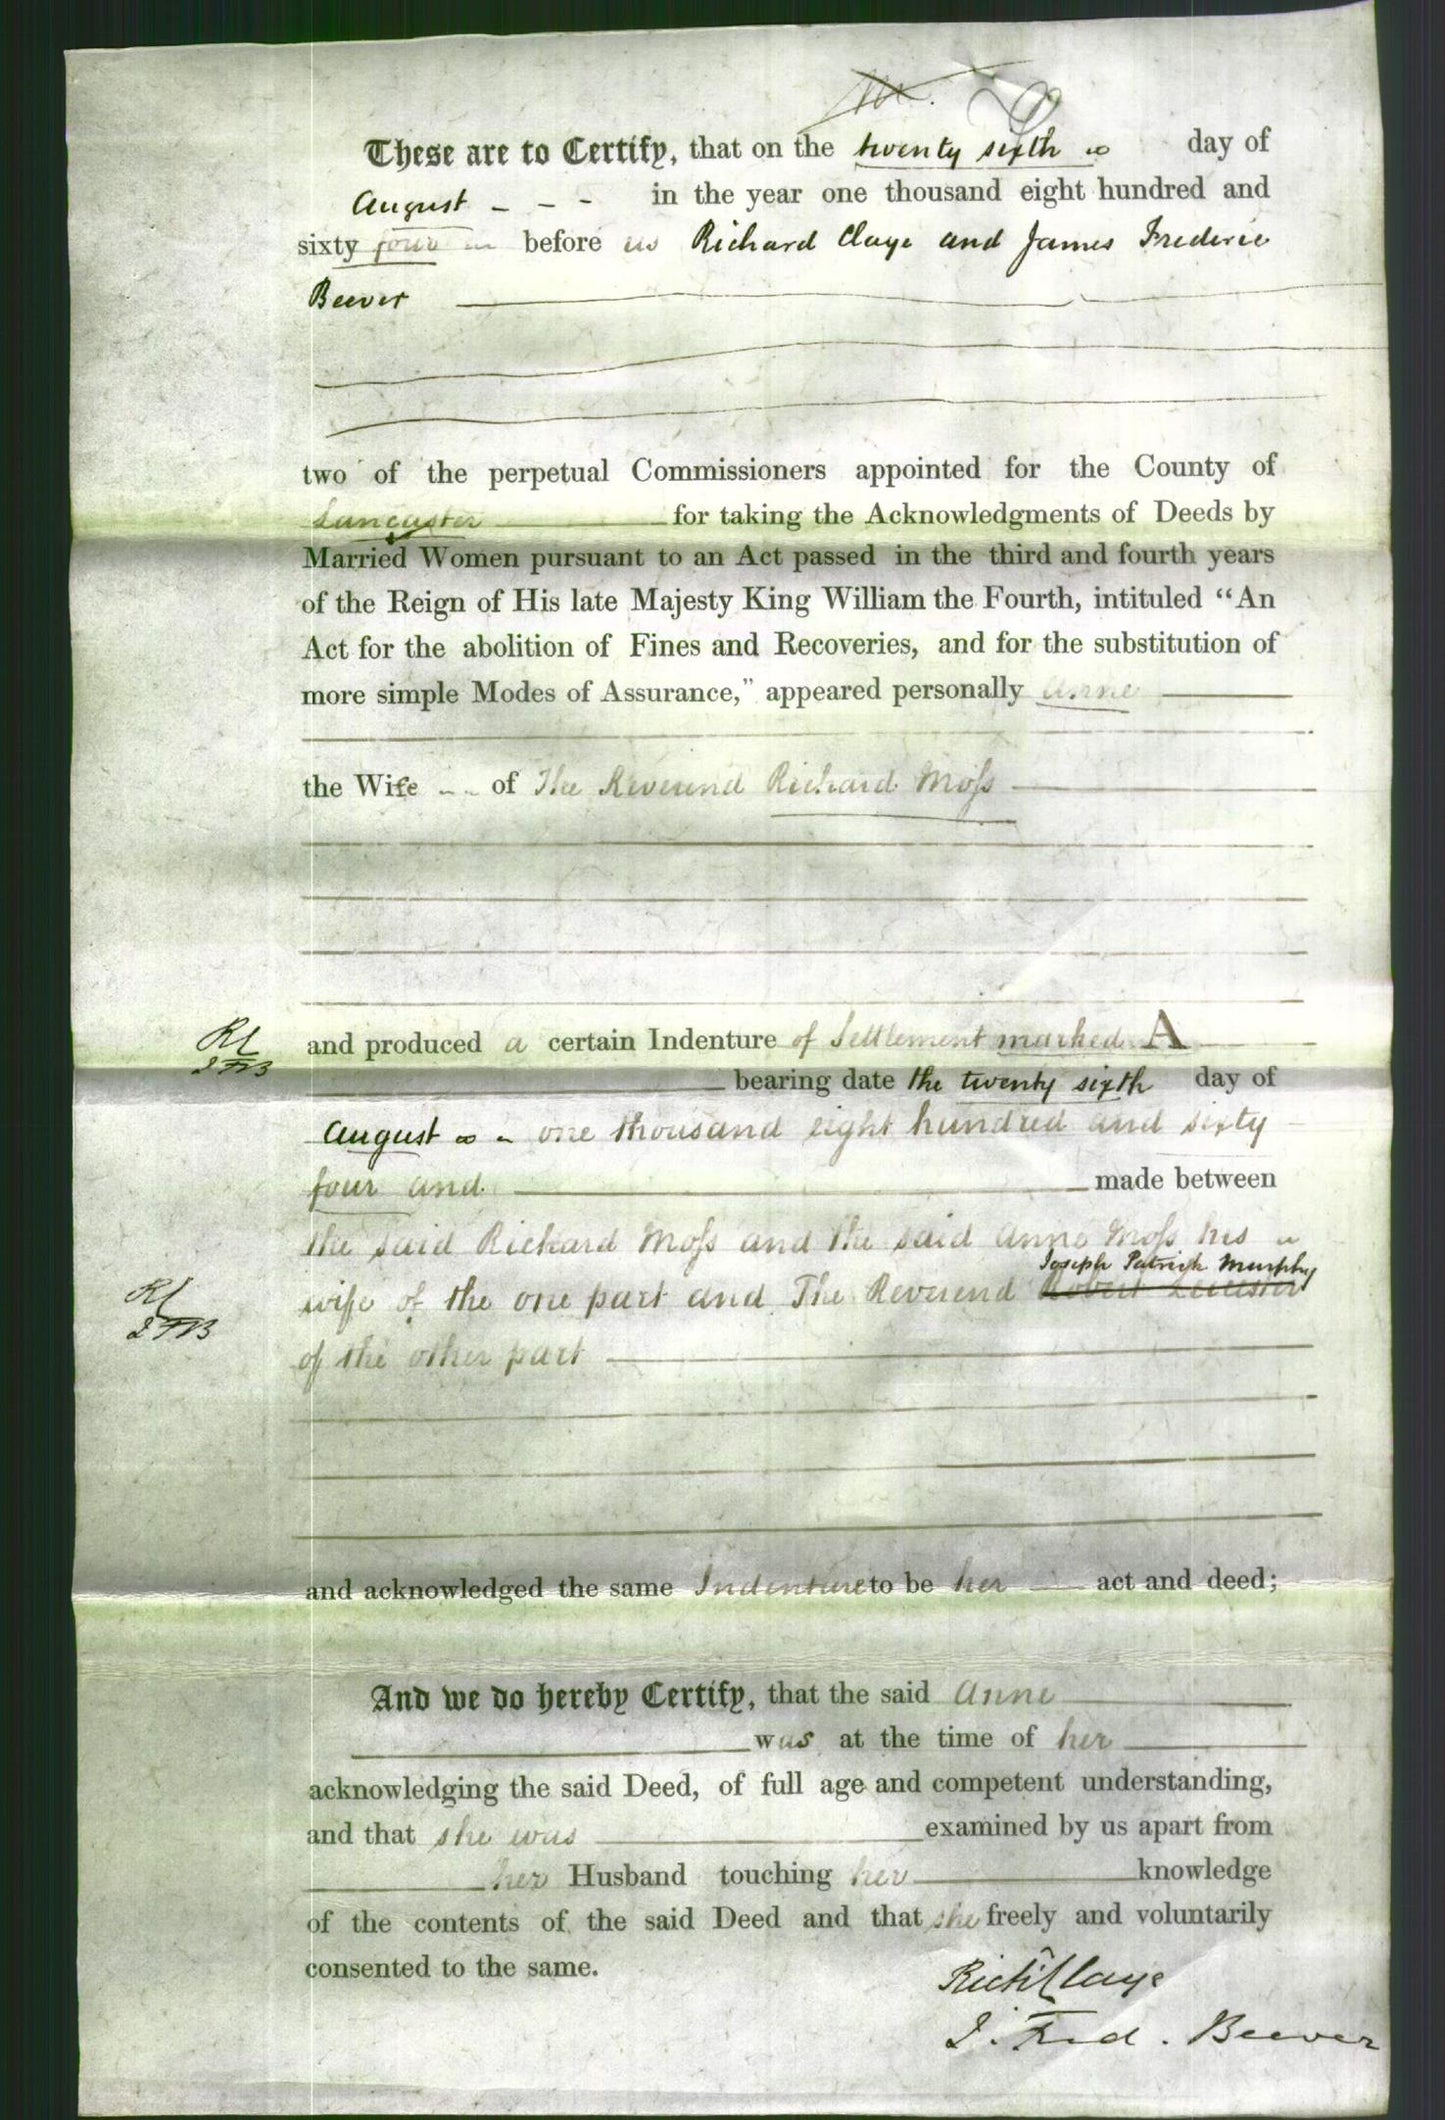 These are to Certify, that on the twenty sixth day of
August - - - in the year one thousand eight hundred and
sixty four before us Richard Claye and James Frederic
Beever
two of the perpetual Commissioners appointed for the County of
Lancaster for taking the Acknowledgments of Deeds by
Married Women pursuant to an Act passed in the third and fourth years
of the Reign of His late Majesty King William the Fourth, intituled “An
Act for the abolition of Fines and Recoveries, and for the substitution of
more simple Modes of Assurance,” appeared personally Anne
the Wife - - of The Reverend Richard Moss
and produced a certain Indenture of Settlement marked A
bearing date the twenty sixth day of
August one thousand eight hundred and sixty
four and made between
the said Richard Moss and the said Anne Moss his
Joseph Patrick Murphy
wife of the one part and The Reverend Robert Leicester
of the other part
and acknowledged the same Indenture to be her act and deed;
And we do hereby Certify, that the said Anne
was at the time of her
acknowledging the said Deed, of full age and competent understanding,
and that she was examined by us apart from
her Husband touching her knowledge
of the contents of the said Deed and that she freely and voluntarily
consented to the same.
Richd Claye
J. Fred. Beever